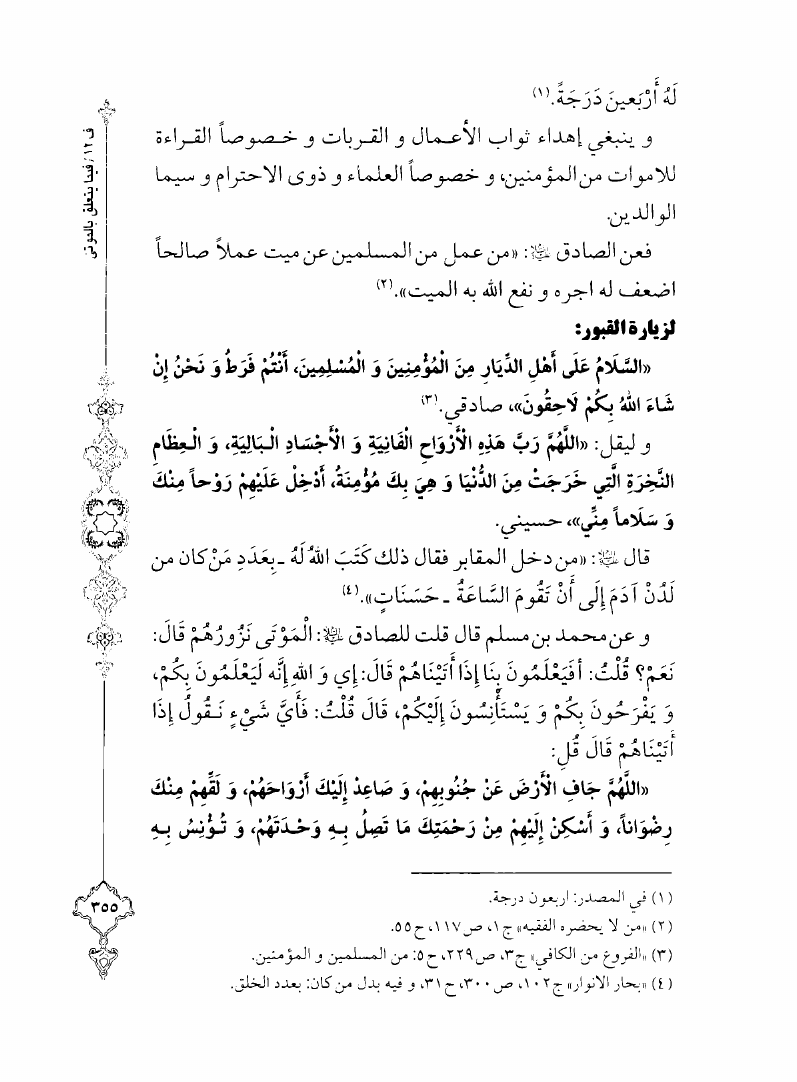 لَهُ أَرْبَعينَ دَرَجَةً.(١)
و ينبغي إهداء ثواب الأعـمـال و القـربـات و خـصـوصـاً القـراءة
للاموات من المؤمنين، و خصوصاً العلماء و ذوى الاحترام و سيما
الوالدين.
فعن الصادق ﷵ: «من عمل من المسلمين عن ميت عملاً صالحاً
اضعف له اجره و نفع الله به الميت».(٢)
لزيارة القبور:
«السَّلَامُ عَلَى أَهْلِ الدِّيَارِ مِنَ الْمُؤْمِنِينَ وَ الْمُسْلِمِينَ، أَنْتُمْ فَرَطٌ وَ نَحْنُ إِنْ
شَاءَ اللهُ بِكُمْ لَاحِقُونَ»، صادقي.(٣)
و ليقل: «اللَّهُمَّ رَبَّ هَذِهِ الْأَرْوَاحِ الْفَانِيَةِ وَ الْأَجْسَادِ الْبَالِيَةِ، وَ الْعِظَامِ
النَّخِرَةِ الَّتِي خَرَجَتْ مِنَ الدُّنْيَا وَ هِيَ بِكَ مُؤْمِنَةٌ، أَدْخِلْ عَلَيْهِمْ رَوْحاً مِنْكَ
وَ سَلَاماً مِنِّي»، حسيني.
قال ﷵ: «من دخل المقابر فقال ذلك كَتَبَ اللهُ لَهُ ـ بِعَدَدِ مَنْ كان من
لَدُنْ آدَمَ إِلَى أَنْ تَقُومَ السَّاعَةُ ـ حَسَنَاتٍ».(٤)
و عن محمد بن مسلم قال قلت للصادق ﷵ: الْمَوْتَى نَزُورُهُمْ قَالَ:
نَعَمْ؟ قُلْتُ: أفَيَعْلَمُونَ بِنَا إِذَا أَتَيْنَاهُمْ قَالَ: إِي وَ اللهِ إِنَّه لَيَعْلَمُونَ بِكُمْ،
وَ يَفْرَحُونَ بِكُمْ وَ يَسْتَأْنِسُونَ إِلَيْكُمْ، قَالَ قُلْتُ: فَأَيَّ شَيْءٍ نَـقُولُ إِذَا
أَتَيْنَاهُمْ قَالَ قُلِ:
«اللَّهُمَّ جَافِ الْأَرْضَ عَنْ جُنُوبِهِمْ، وَ صَاعِدْ إِلَيْكَ أَرْوَاحَهُمْ، وَ لَقِّهِمْ مِنْكَ
رِضْوَاناً، وَ أَسْكِنْ إِلَيْهِمْ مِنْ رَحْمَتِكَ مَا تَصِلُ بِـهِ وَحْـدَتَهُمْ، وَ تُـؤْنِسُ بِـهِ
(١) في المصدر: اربعون درجة.
(٢) «من لا يحضره الفقيه» ج١، ص١١٧، ح٥٥.
(٣) «الفروع من الكافي» ج٣، ص٢٢٩، ح٥: من المسلمين و المؤمنين.
(٤) «بحار الانوار» ج١٠٢، ص٣٠٠، ح٣١، و فيه بدل من كان: بعدد الخلق.
ف ١٢ / فيما يتعلق بالموتى
٣٥٥